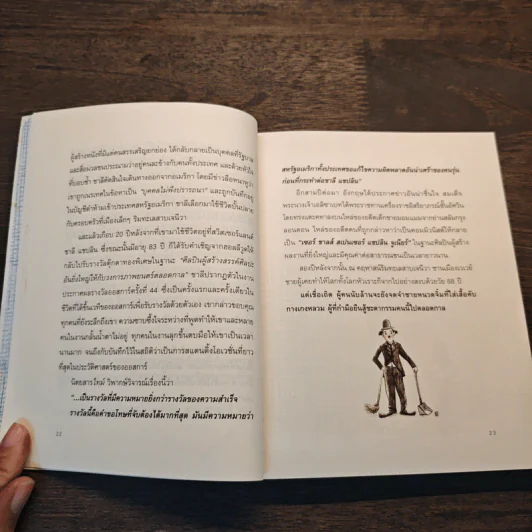 ผู้สร้างหนังที่มีแต่คนสรรเสริญยกย่อง ได้กลับกลายเป็นบุคคลที่รัฐบาล
และสื่อมวลชนประณามว่าอยู่คนละข้างกับคนทั้งประเทศ และด้วย
ที่บอบช้ำ ชาลีตัดสินใจเดินทางออกจากอเมริกา โดยมีข่าวลือหนาหูว่า
เขาถูกเนรเทศในข้อหาเป็น "บุคคลไม่พึงปรารถนา" และถูกบันทึกลง
ในบัญชีดำห้ามเข้าประเทศสหรัฐอเมริกา ชาลีเลือกมาใช้ชีวิตบั้นปลาย
กับครอบครัวที่เมืองเล็กๆ ริมทะเลสาบเจนีวา
และแล้วเกือบ 20 ปีหลังจากที่เขามาใช้ชีวิตอยู่ที่สวิตเซอร์แลนด์
ชาลี แชปลิน ซึ่งขณะนั้นมีอายุ 83 ปี ก็ได้รับคำเชิญจากฮอลลีวูดให้
กลับไปรับรางวัลตุ๊กตาทองพิเศษในฐานะ "ศิลปินผู้สร้างสรรค์ศิลปะ
อันยิ่งใหญ่ให้กับวงการภาพยนตร์ตลอดกาล" ชาลีปรากฏตัวในงาน
ประกาศผลรางวัลออสการ์ครั้งที่ 44 ซึ่งเป็นครั้งแรกและครั้งเดียวใน
ชีวิตที่ได้ขึ้นเวทีของออสการ์เพื่อรับรางวัลด้วยตัวเอง เขากล่าวขอบคุณ
ทุกคนที่ยังระลึกถึงเขา ความซาบซึ้งใจระหว่างที่พูดทำให้เขาและหลาย
คนในงานกลั้นน้ำตาไม่อยู่ ทุกคนในงานลุกขึ้นตบมือให้เขาเป็นเวลา
นานมาก จนถึงกับบันทึกไว้ในสถิติว่าเป็นการสแตนดิ้งโอเวชั่นที่ยาว
ที่สุดในประวัติศาสตร์ของออสการ์
นิตยสารไทม์ วิพากษ์วิจารณ์เรื่องนี้ว่า
"...เป็นรางวัลที่มีความหมายยิ่งกว่ารางวัลของความสำเร็จ
รางวัลนี้คือคำขอโทษที่จับต้องได้มากที่สุด มันมีความหมายว่า
22
สหรัฐอเมริกาทั้งประเทศขอแก้ไขความผิดพลาดอันน่าเศร้าของคนรุ่น
ก่อนที่กระทำต่อชาลี แชปลิน"
อีกสามปีต่อมา อังกฤษได้ประกาศข่าวอันน่าชื่นใจ สมเด็จ
พระนางเจ้าเอลิซาเบทได้พระราชทานเครื่องราชอิสริยาภรณ์ชั้นอัศวิน
โดยทรงแตะดาบลงบนไหล่ของอดีตเด็กชายมอมแมมจากย่านสลัมกรุง
ลอนดอน ไหล่ของอดีตคนที่ถูกกล่าวหาว่าเป็นคอมมิวนิสต์ให้กลาย
เป็น "เซอร์ ชาลส์ สเปนเซอร์ แชปลิน จูเนียร์" ในฐานะศิลปินผู้สร้าง
ผลงานที่ยิ่งใหญ่และมีคุณค่าต่อสาธารณชนเป็นเวลายาวนาน
สองปีหลังจากนั้น ณ คฤหาสน์ริมทะเลสาบเจนีวา ชายเฒ่า
ชายผู้เคยทำให้โลกทั้งโลกหัวเราะก็จากไปอย่างสงบด้วยวัย 88 ปี
แต่เชื่อเถิด ผู้คนนับล้านจะยังจดจำชายหนวดจิ๋มที่ใส่เสื้อคับ
กางเกงหลวม ผู้ที่กำมือยินสู้ชะตากรรมคนนี้ไปตลอดกาล
23